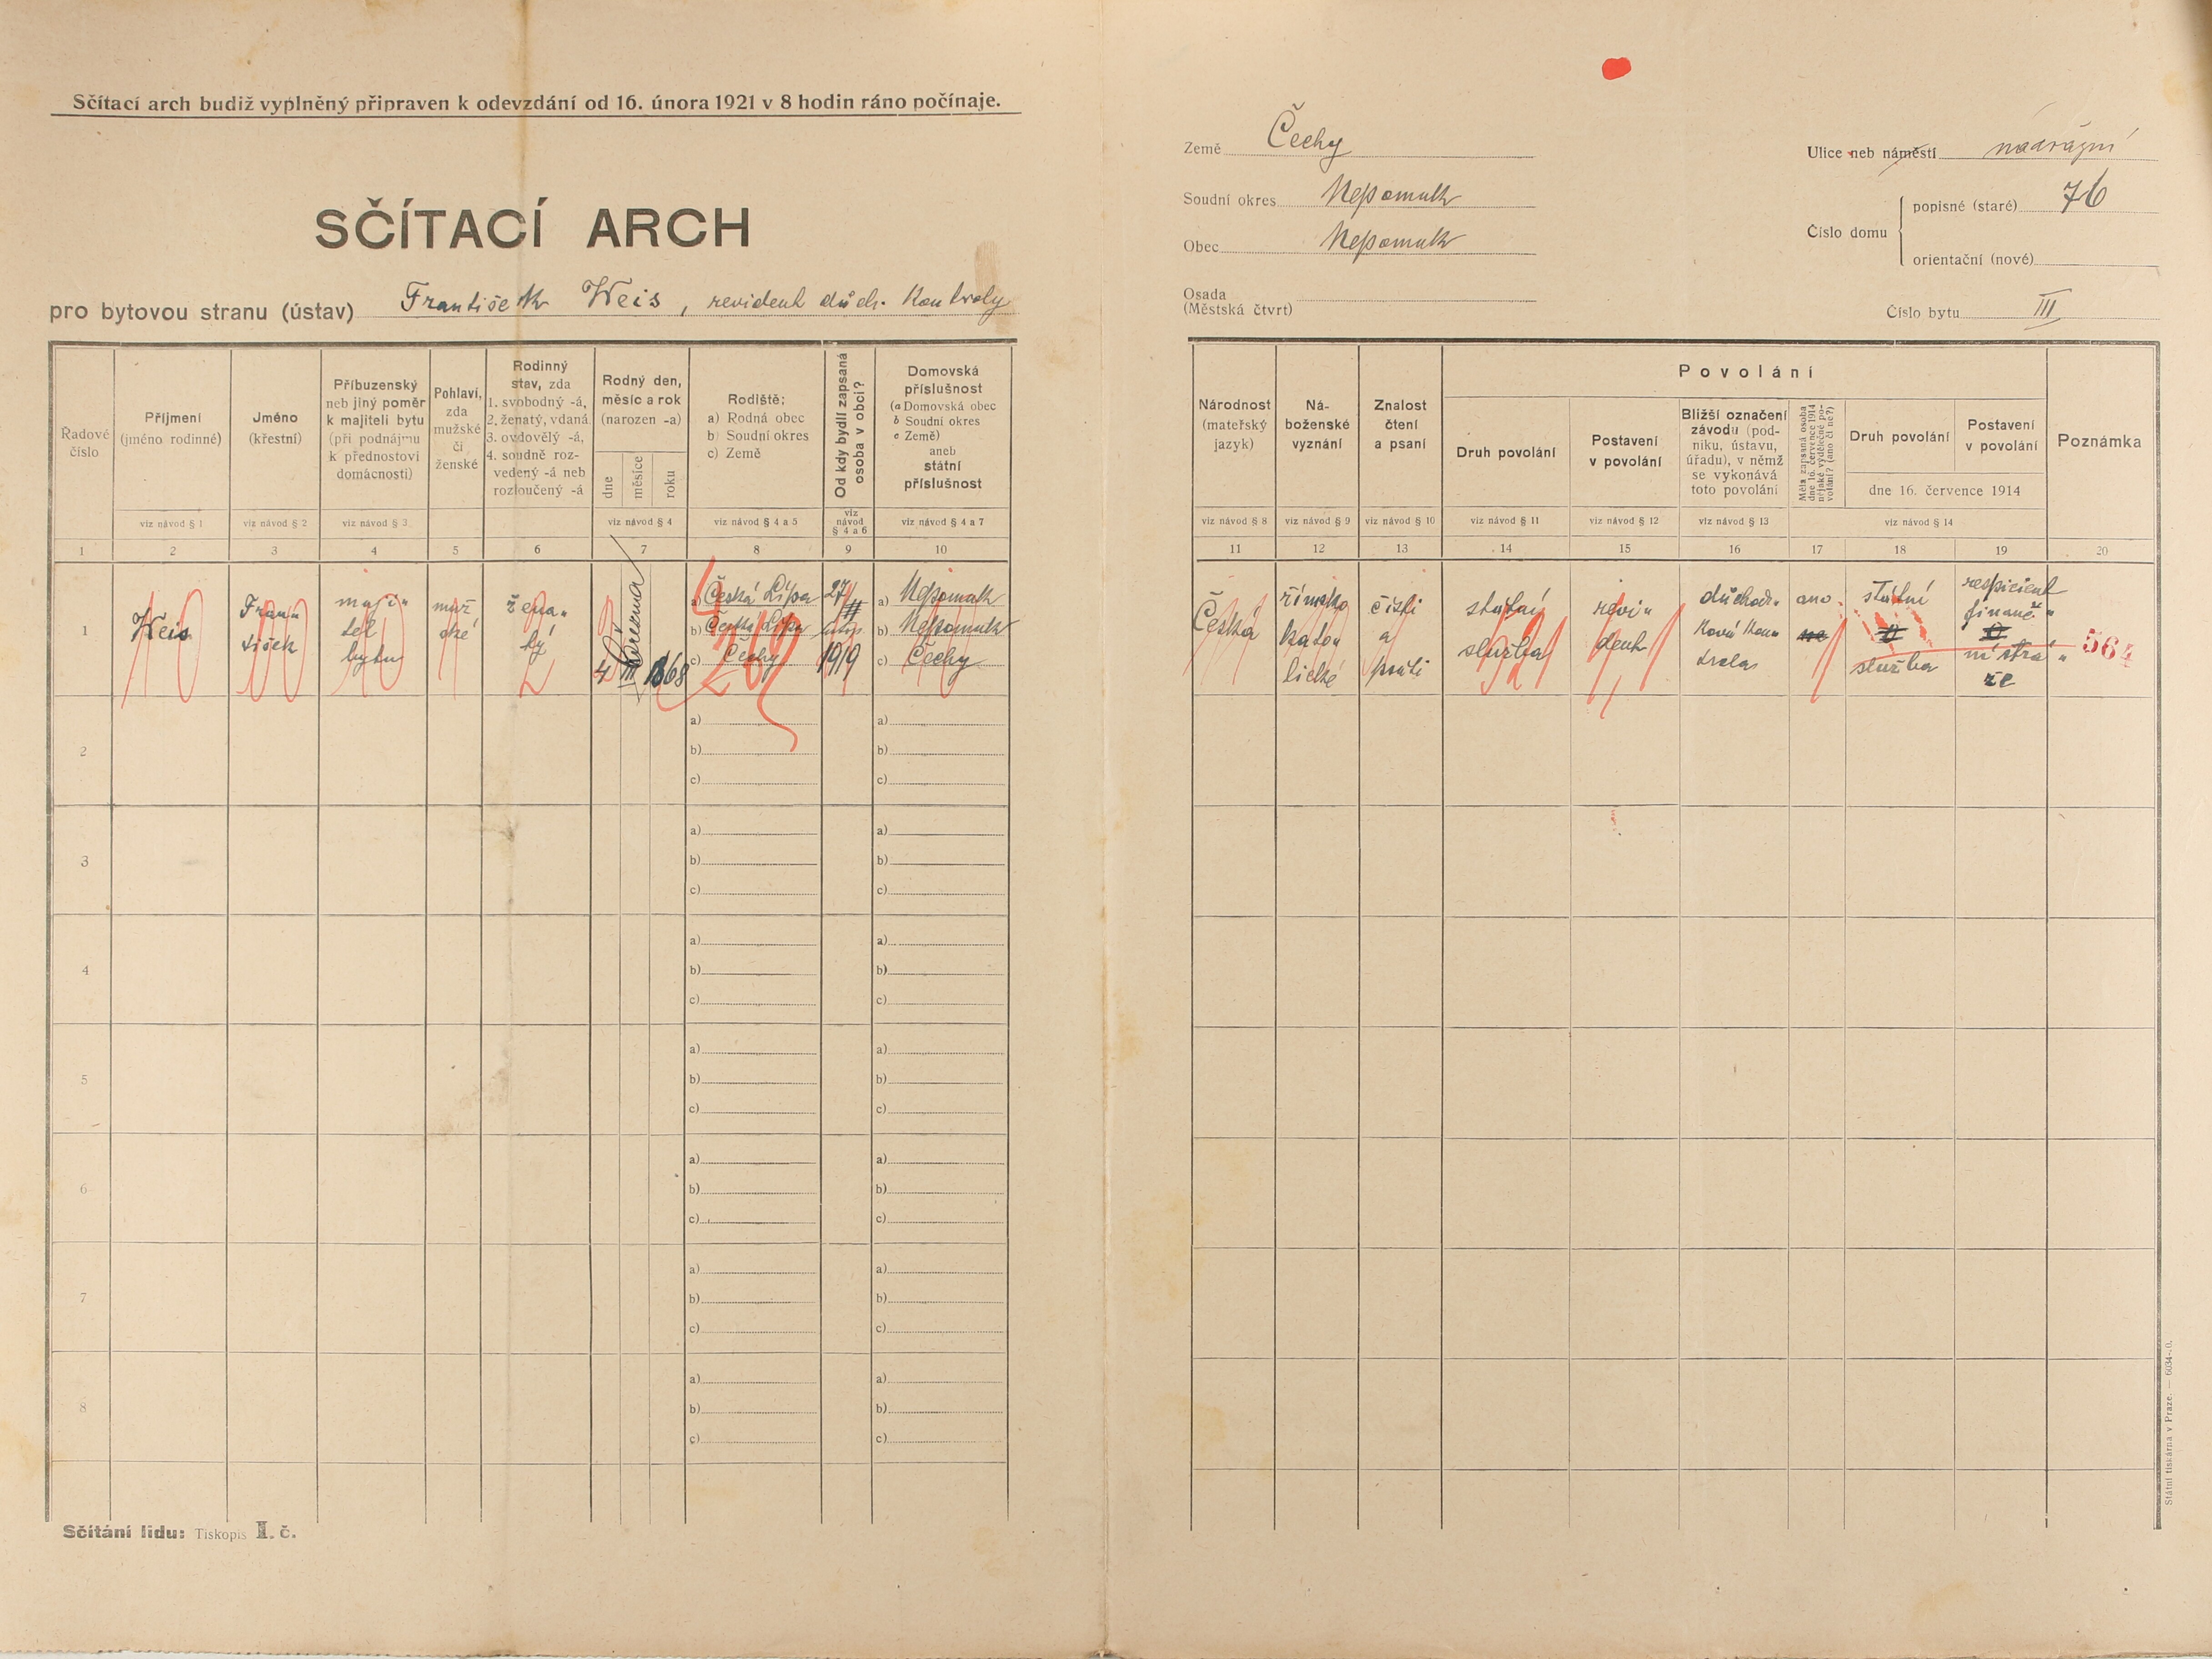 Sčítací arch budiž vyplněný připraven k odevzdání od 16. února 1921 v 8 hodin ráno počínaje.
SČÍTACÍ ARCH
pro bytovou stranu (ústav) František Weis, revident důch. kontroly
Země Čechy
Soudní okres Nepomuk
Obec Nepomuk
Osada
(Městská čtvrt)
Ulice neb náměstí nádražní
Číslo domu
popisné (staré) 76
orientační (nové)
Číslo bytu III
Řadové
číslo
1
Příjmení
(jméno rodinné)
viz návod § 1
2
Jméno
(křestní)
viz návod § 2
3
Příbuzenský
neb jiný poměr
k majiteli bytu
(při podnájmu
k přednostovi
domácnosti)
viz návod § 3
4
Pohlaví,
zda
mužské
či
ženské
5
Rodinný
stav, zda
1. svobodný -á,
2. ženatý, vdaná
3. ovdovělý -á,
4. soudně roz-
vedený -á neb
rozloučený -á
6
Rodný den,
měsíc a rok
(narozen -a)
dne
měsíce
roku
viz návod § 4
7
Rodiště:
a) Rodná obec
b) Soudní okres
c) Země
viz návod § 4 a 5
8
Od kdy bydlí zapsaná
osoba v obci?
viz
návod
§ 4 a 6
9
Domovská
příslušnost
(a Domovská obec
b Soudní okres
c Země)
aneb
státní
příslušnost
viz návod § 4 a 7
10
Národnost
(mateřský
jazyk)
viz návod § 8
11
Ná-
boženské
vyznání
viz návod § 9
12
Znalost
čtení
a psaní
viz návod § 10
13
Povolání
Druh povolání
viz návod § 11
14
Postavení
v povolání
viz návod § 12
15
Bližší označení
závodu (pod-
niku, ústavu,
úřadu), v němž
se vykonává
toto povolání
viz návod § 13
16
Měla zapsaná osoba
dne 16. července 1914
nějaké výdělečné po-
volání? (ano či ne?)
17
Druh povolání
18
Postavení
v povolání
19
dne 16. července 1914
viz návod § 14
Poznámka
20
1
Weis
Fran„
tišek
maji„
tel
bytu
muž
ské
žena„
tý
4 III 1868
a) Česká Lípa
b) Česká Lípa
c) Čechy
27/
1919
a) Nepomuk
b) Nepomuk
c) Čechy
Česká
římsko
kato„
lické
čísti
a
psáti
státní
služba
revi„
dent
důchod„
ková kon„
trola
ano
ne
státní
služba
respicient
finanč„
ní strá„
že
564
2
a)
b)
c)
a)
b)
c)
3
a)
b)
c)
a)
b)
c)
4
a)
b)
c)
a)
b)
c)
5
a)
b)
c)
a)
b)
c)
6
a)
b)
c)
a)
b)
c)
7
a)
b)
c)
a)
b)
c)
8
a)
b)
c)
a)
b)
c)
Sčítání lidu: Tiskopis I. č.
Státní tiskárna v Praze. — 6034-.0.